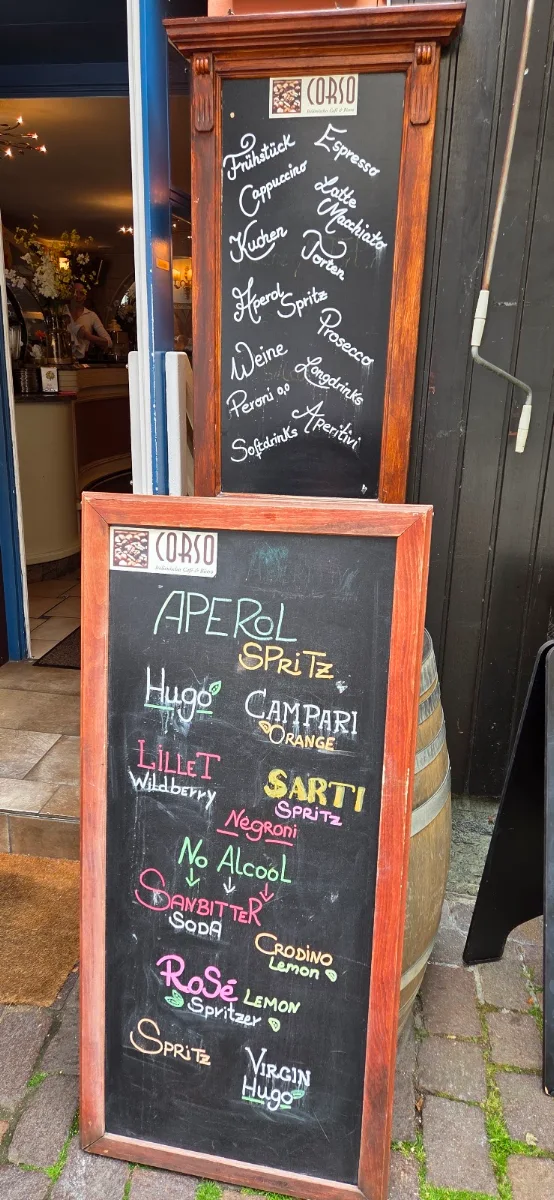 CORSO
Italienisches Café & Bistro
Frühstück
Espresso
Cappuccino
Latte
Macchiato
Kuchen
Torten
Aperol Spritz
Prosecco
Weine
Longdrinks
Peroni 0,0
Aperitivi
Softdrinks
CORSO
Italienisches Café & Bistro
APEROL
SPRITZ
Hugo
CAMPARI
ORANGE
LILLET
Wildberry
SARTI
SPRITZ
Negroni
No AlcooL
SANBITTER
SODA
CRODINO
Lemon
RoSé LEMON
Spritzer
SPRITZ
VIRGIN
Hugo